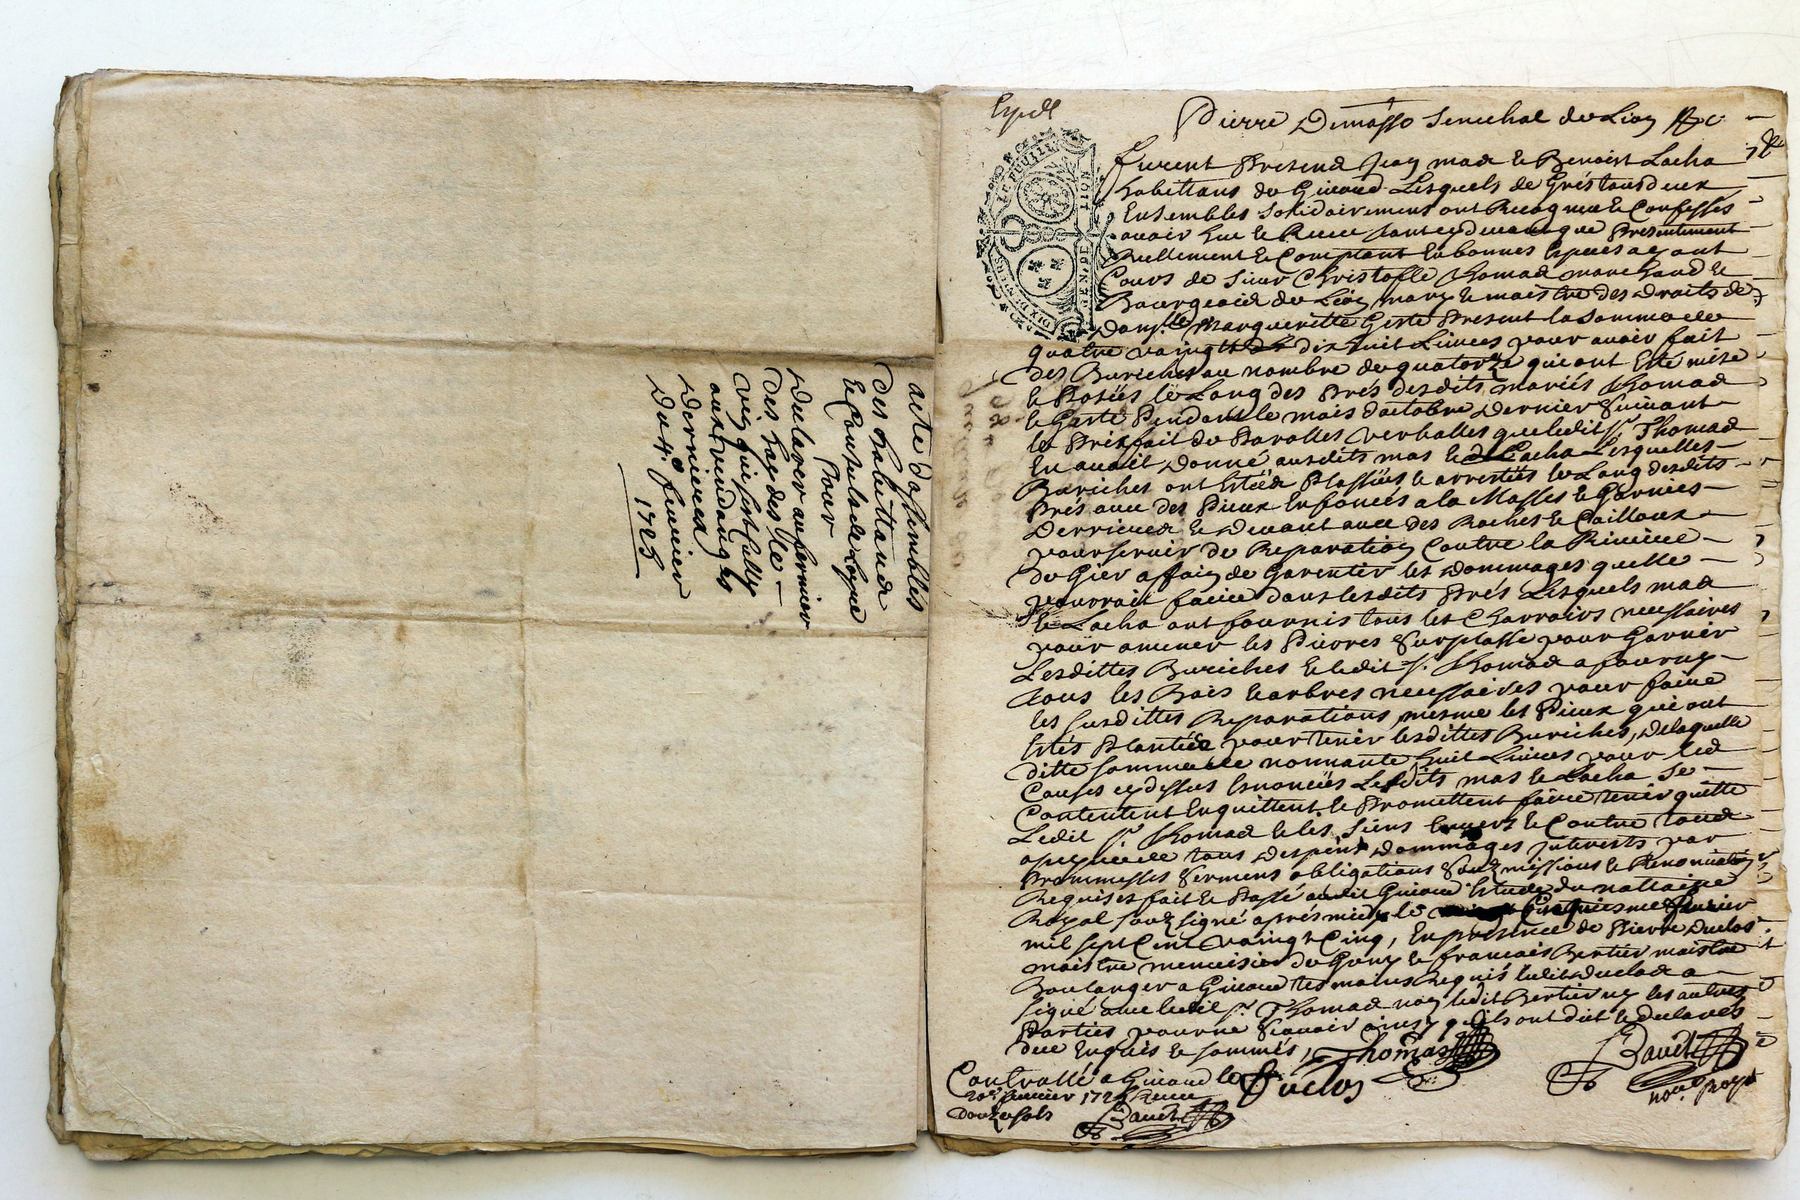 acte d'asemblés
des habittands
de Consulade Loyre
Pour
Du laver au fermier
aux vendanges
dernieres
Du 4e. feuvrier
1725
Pierre Demasso Senechal de Lion &c
furent Presend Jean mad & Benoist Lacha
habittans de Giuord Lesquels de Grés tous deux
Ensembles solidairement ont Recognu & Confesses
auoir Eu & Receu presentement
Reellement & Comptant En bonnes Especes ayant
Cours de sieur Christofle Thomad marchand &
Bourgeois de Lion mary & maistre des Droits de
Damlle Margueritte Geste Present la somme de
quatre vaingt dix huit Liures pour auoir fait
des Buriches au nombre de quatorze qui ont Esté mise
& Posées le Long des Prés desdits mariés Thomad
& Geste Pendant le mois d'octobre Dernier suiuant
le Prix fait de Parolles verballes que ledit Sr. Thomad
En auoit donné ausdits mas & Lacha Lesquelles
Buriches ont Estéd Plassées & arrestées le Long desdits
Prés auec des Pieux Enfoncés a la Masse & Garnies
Derriered & deuant auec des Roches & Cailloux
pour seruir de Reparation Contre la Riuiere
de Gier affain de Garentir les dommages quelle
pouroit faire dans lesdits Prés Lesquels mad
& Lacha ont fournis tous les Charrois necessaires
pour amener les Pierres sur plasse pour Garnir
Lesdittes Buriches & ledit Sr. Thomad a fourny
tous les Bois & arbres necessaires pour faire
les susdittes Reparations mesme les Pieux qui ont
Estés Plantés pour tenir lesdittes Buriches, de laquelle
ditte somme de nonnante huit Liures pour led
Causes cy dessus Enoncées Lesdits mas & Lacha se
Contentent Enquittent & Promettent faire tenir quitte
Ledit Sr. Thomad & les siens Enuers & Contre toud
a peyne de tous despens dommages Interests par
Prommesses sermens obligations soubzmissions & Renonciation
Requises fait & Passé audit Giuord Estude du nottaire
Royal souz signé aprés midy le Cinquiesme feurier
mil sept Cent vaingt Cinq, En presence de Pierre Duclos
maistre menuisier de & francois Bertier maistre
Boulanger a Giuord tesmoins Requis Ledit duclod a
signé auec ledit Sr. Thomad non ledit Bertier ny les autres
Parties pour ne scauoir ainsy quils ont dit & declarés
de ce Enquis & sommés, Thomas
Bauet
Duclos
not. royal
Controllé a Giuord le
feurier 172 Receu
douze sols
Bauet